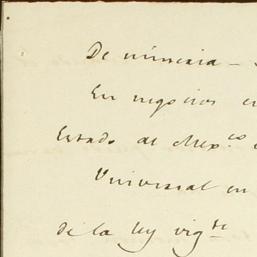 De minería –
En negocios en
Estado de Mex.co
Universal en
de la ley vig.te